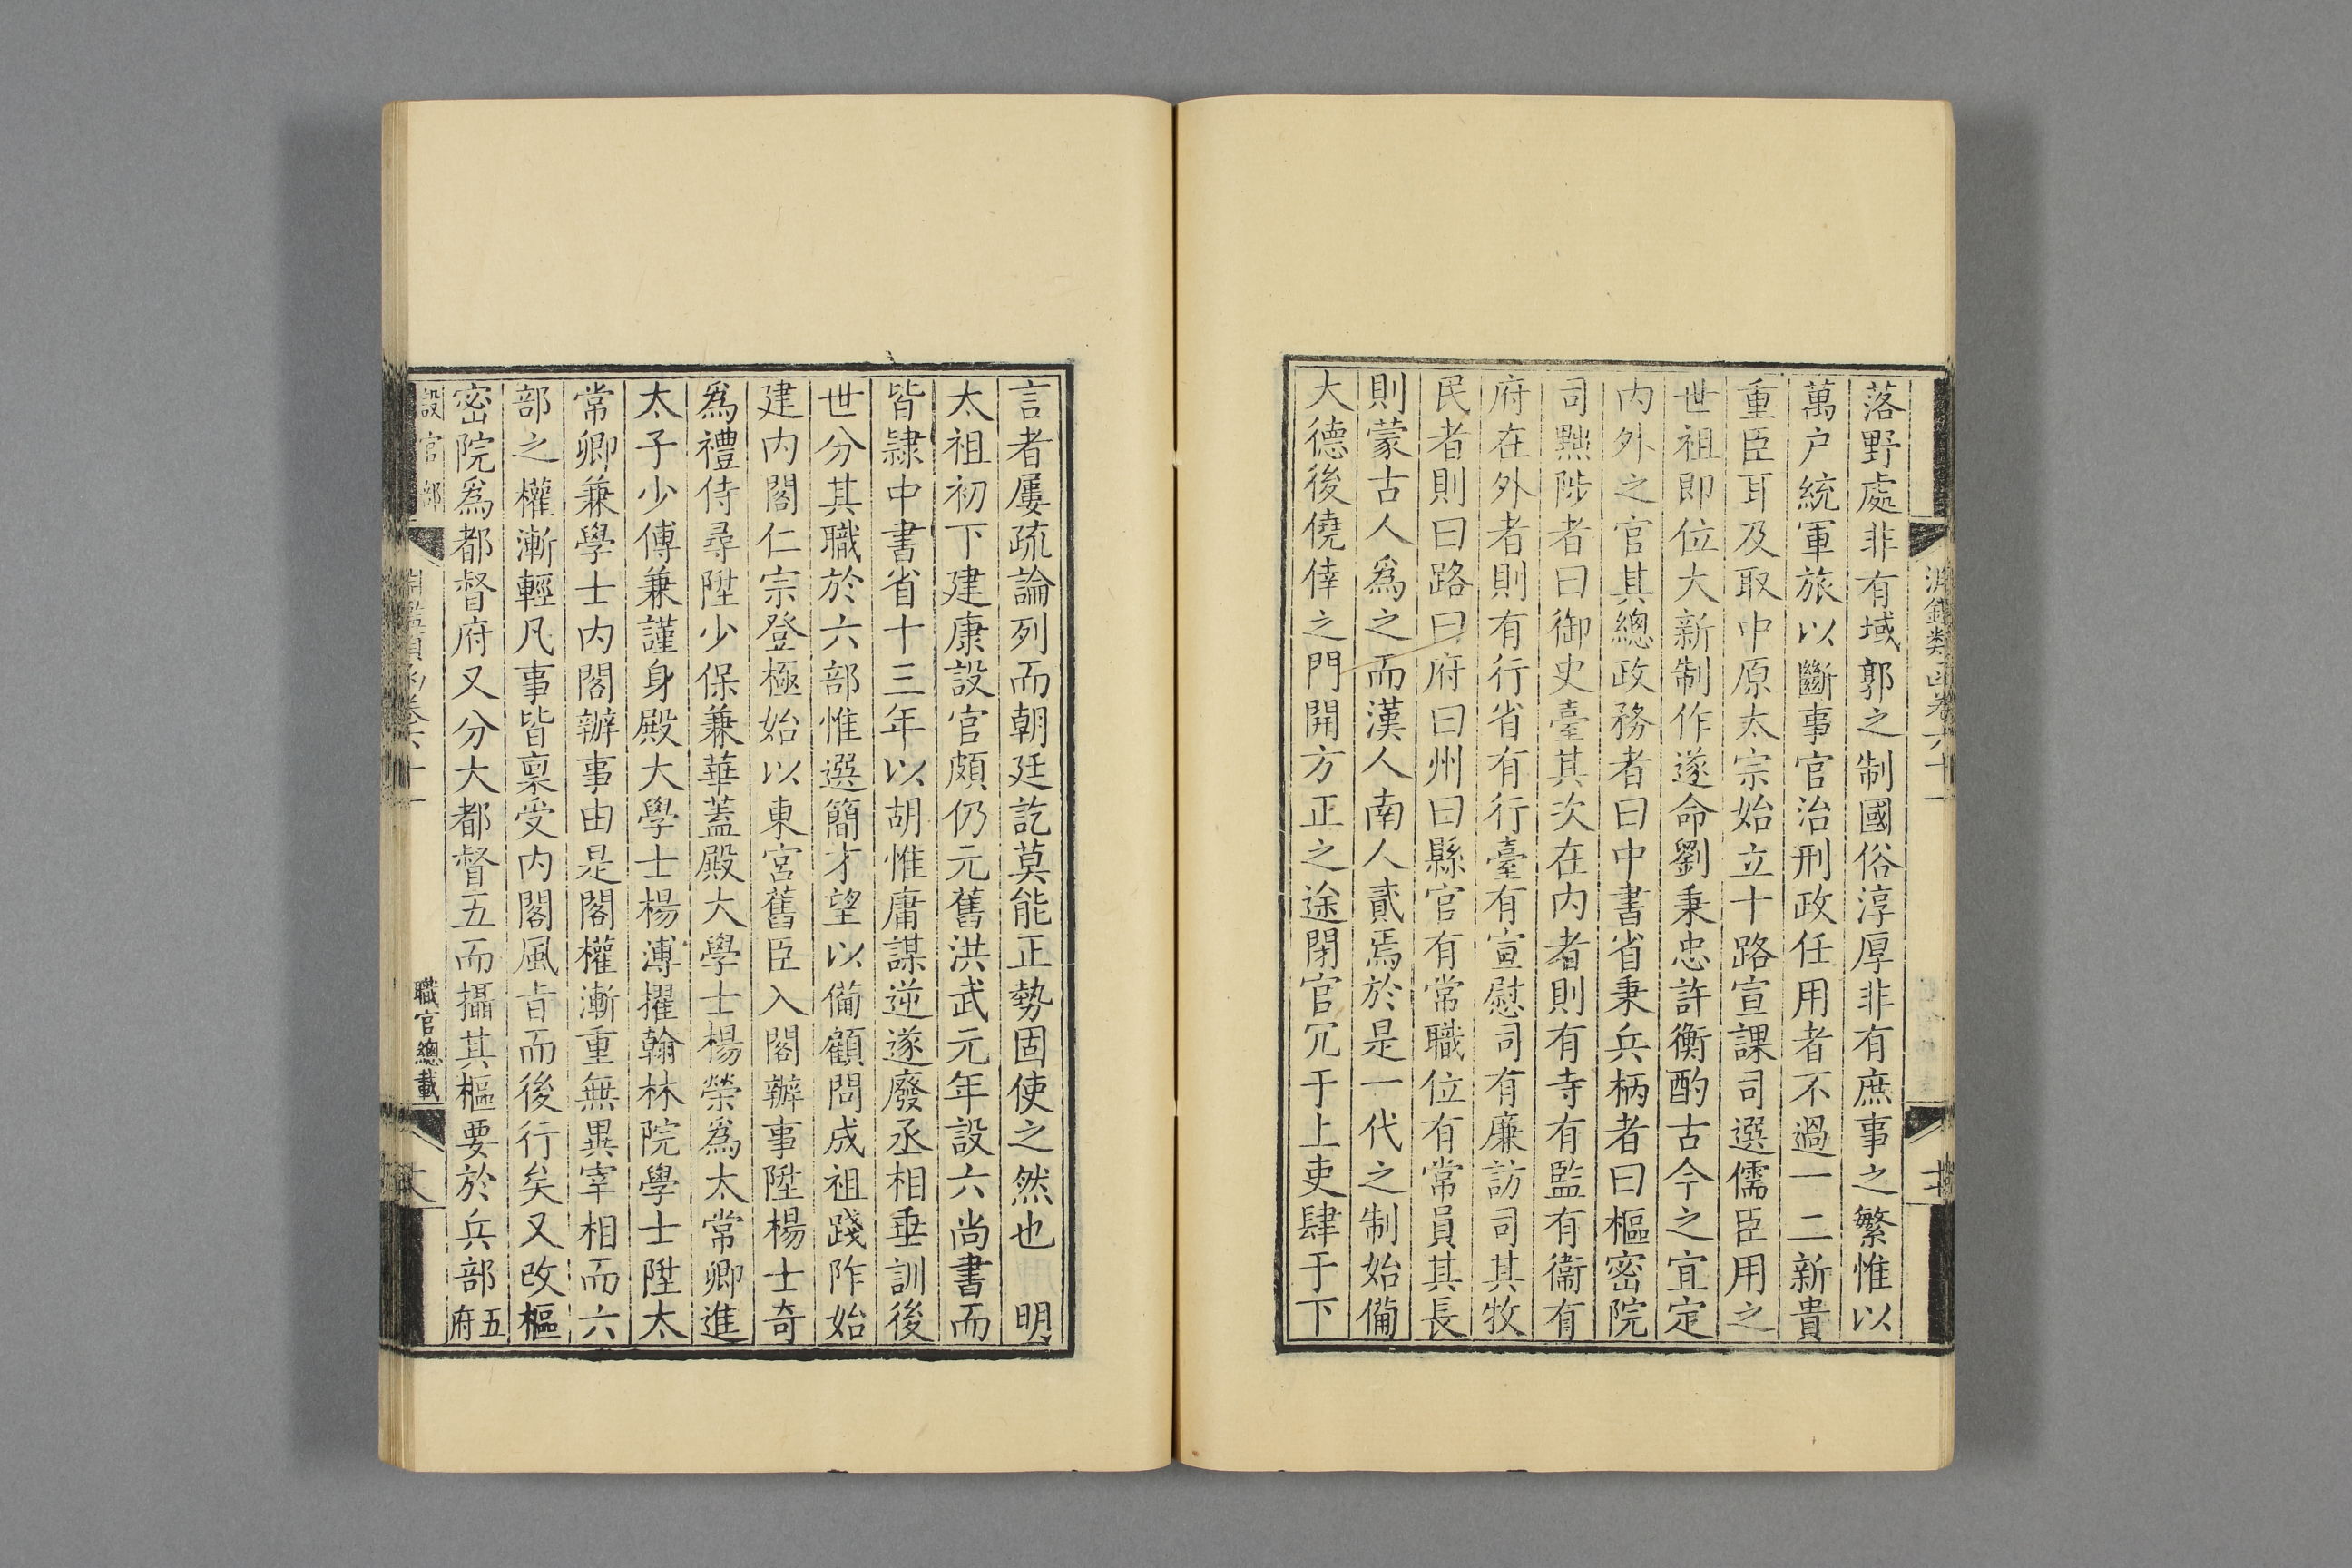 淵鑑類函卷六十一
落野處非有城郭之制國俗淳厚非有庶事之繁惟以
萬户統軍旅以斷事官治刑政任用者不過一二新貴
重臣耳及取中原太宗始立十路宣課司選儒臣用之
世祖即位大新制作遂命劉秉忠許衡酌古今之宜定
内外之官其總政務者曰中書省秉兵柄者曰樞密院
司黜陟者曰御史臺其次在内者則有寺有監有衞有
府在外者則有行省有行臺有宣慰司有廉訪司其牧
民者則曰路曰府曰州曰縣官有常職位有常員其長
則蒙古人爲之而漢人南人貳焉於是一代之制始備
大德後僥倖之門開方正之途閉官冗于上吏肆于下
言者屢疏論列而朝廷訖莫能正勢固使之然也 明
太祖初下建康設官頗仍元舊洪武元年設六尚書而
皆隷中書省十三年以胡惟庸謀逆遂廢丞相垂訓後
世分其職於六部惟選簡才望以備顧問成祖踐阼始
建内閣仁宗登極始以東宮舊臣入閣辦事陞楊士奇
爲禮侍尋陞少保兼華蓋殿大學士楊榮爲太常卿進
太子少傅兼謹身殿大學士楊溥擢翰林院學士陞太
常卿兼學士内閣辦事由是閣權漸重無異宰相而六
部之權漸輕凡事皆稟受内閣風㫖而後行矣又改樞
密院爲都督府又分大都督五而攝其樞要於兵部五府
設官部 淵鑑類函卷六十一 職官總載